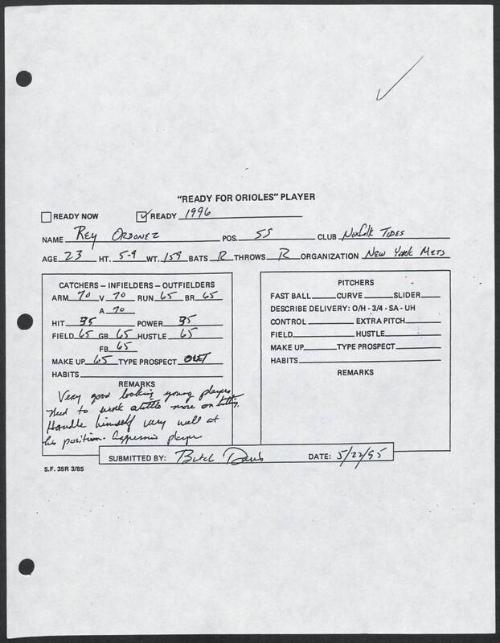 "READY FOR ORIOLES" PLAYER
READY NOW ✓ READY 1996
NAME Rey Ordonez POS. SS CLUB Norfolk Tides
AGE 23 HT. 5-9 WT. 159 BATS R THROWS R ORGANIZATION New York Mets
CATCHERS – INFIELDERS – OUTFIELDERS
ARM 70 V 70 RUN 65 BR 65
A 70
HIT 35 POWER 35
FIELD 65 GB 65 HUSTLE 65
FB 65
MAKE UP 65 TYPE PROSPECT
HABITS
REMARKS
Very good looking young player,
need to work a little more on
Handle himself very well at
his position. player
PITCHERS
FAST BALL CURVE SLIDER
DESCRIBE DELIVERY: O/H - 3/4 - SA - UH
CONTROL EXTRA PITCH
FIELD HUSTLE
MAKE UP TYPE PROSPECT
HABITS
REMARKS
SUBMITTED BY: Butch Davis DATE: 5/22/95
S.F. 35R 3/85